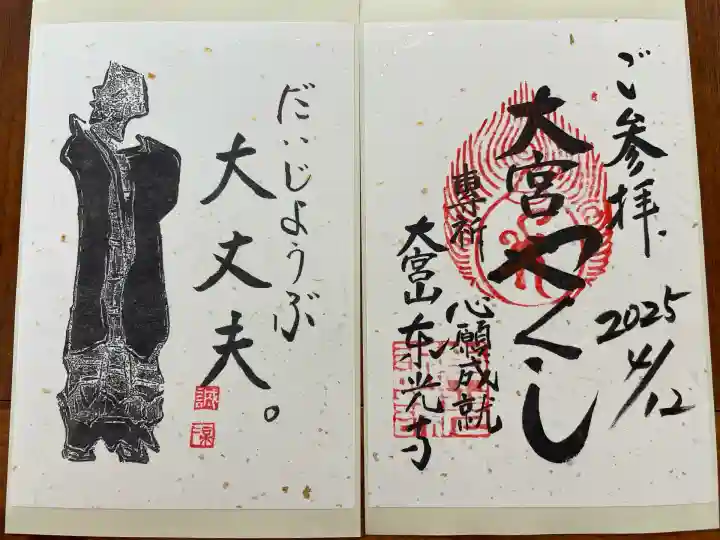 だいじようぶ
大丈夫。
ご参拝、
2025
4/12
大宮やくし
専祈 心願成就
大宮山 东光寺